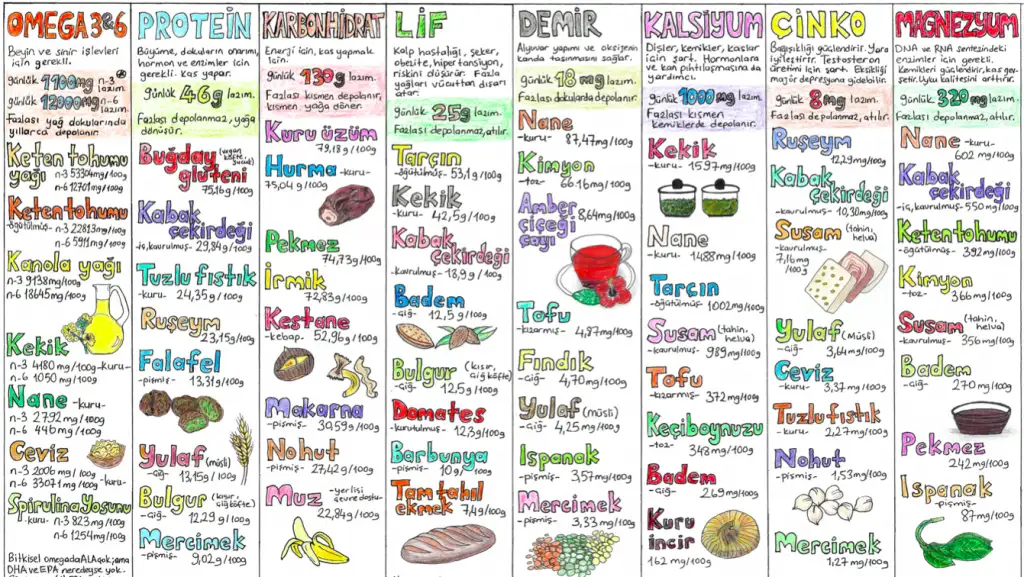 OMEGA 3&6
Beyin ve sinir işlevleri
için gerekli.
günlük 1100mg n-3
lazım.
günlük 12000mg n-6
lazım.
Fazlası yağ dokularında
yıllarca depolanır.
Keten tohumu
yağı n-3 53304mg/100g
n-6 12701mg/100g
Keten tohumu
-öğütülmüş- n-3 22813mg/100g
n-6 5911mg/100g
Kanola yağı
n-3 9138mg/100g
n-6 18645mg/100g
Kekik
n-3 4180mg/100g -kuru-
n-6 1050mg/100g
Nane -kuru-
n-3 2792mg/100g
n-6 446mg/100g
Ceviz
n-3 2006mg/100g
n-6 33071mg/100g -kuru-
Spirulina Yosunu
-kuru- n-3 823mg/100g
n-6 1254mg/100g
Bitkisel omegada ALA çok; ama
DHA ve EPA neredeyse yok.
PROTEİN
Büyüme, dokuların onarımı,
hormon ve enzimler için
gerekli. Kas yapar.
günlük 46g lazım.
Fazlası depolanmaz, yağa
dönüşür.
Buğday
gluteni
75,16g/100g
Kabak
çekirdeği
-iç, kavrulmuş- 29,84g/100g
Tuzlu fıstık
-kuru- 24,35g/100g
Ruşeym
23,15g/100g
Falafel
-pişmiş- 13,31g/100g
Yulaf (müsli)
-çiğ- 13,15g/100g
Bulgur (kısır, çiğ köfte)
-çiğ- 12,29g/100g
Mercimek
-pişmiş- 9,02g/100g
KARBONHİDRAT
Enerji için, kas yapmak
için.
günlük 130g lazım.
Fazlası kısmen depolanır,
kısmen yağa döner.
Kuru üzüm
79,18g/100g
Hurma -kuru-
75,04g/100g
Pekmez
74,73g/100g
İrmik
72,83g/100g
Kestane
-kebap- 52,96g/100g
Makarna
-pişmiş- 30,59g/100g
Nohut
-pişmiş- 27,42g/100g
Muz -yerlisi çevre dostu-
22,84g/100g
LİF
Kalp hastalığı, şeker,
obesite, hipertansiyon,
riskini düşürür. Fazla
yağları vücuttan dışarı
atar.
günlük 25g lazım.
Fazlası depolanmaz, atılır.
Tarçın
-öğütülmüş- 53,1g/100g
Kekik
-kuru- 42,5g/100g
Kabak
çekirdeği
-kavrulmuş- 18,9g/100g
Badem
-çiğ- 12,5g/100g
Bulgur (kısır, çiğ köfte)
-çiğ- 12,5g/100g
Domates
-kurutulmuş- 12,3g/100g
Barbunya
-pişmiş- 10g/100g
Tam tahıl
ekmek 7,4g/100g
DEMİR
Alyuvar yapımı ve oksijenin
kanda taşınmasını sağlar.
günlük 18mg lazım.
Fazlası dokularda depolanır.
Nane
-kuru- 87,47mg/100g
Kimyon
-toz- 66.16mg/100g
Amber
çiçeği
çayı 8,64mg/100g
Tofu
-kızarmış- 4,87mg/100g
Fındık
-çiğ- 4,70mg/100g
Yulaf (müsli)
-çiğ- 4,25mg/100g
Ispanak
-pişmiş- 3,57mg/100g
Mercimek
-pişmiş- 3,33mg/100g
KALSİYUM
Dişler, kemikler, kaslar
için şart. Hormonlara
ve kan pıhtılaşmasına da
yardımcı.
günlük 1000mg lazım.
Fazlası kısmen
kemiklerde depolanır.
Kekik
-kuru- 1597mg/100g
Nane
-kuru- 1488mg/100g
Tarçın
-öğütülmüş- 1002mg/100g
Susam (tahin, helva)
-kavrulmuş- 989mg/100g
Tofu
-kızarmış- 372mg/100g
Keçiboynuzu
-toz- 348mg/100g
Badem
-çiğ- 269mg/100g
Kuru
incir
162mg/100g
ÇİNKO
Bağışıklığı güçlendirir. Yara
iyileştirir. Testosteron
üretimi için şart. Eksikliği
majör depresyona gidebilir.
günlük 8mg lazım.
Fazlası depolanmaz, atılır.
Ruşeym
12,29mg/100g
Kabak
çekirdeği
-kavrulmuş- 10,30mg/100g
Susam (tahin, helva)
-kavrulmuş-
7,16mg
/100g
Yulaf (Müsli)
-çiğ- 3,64mg/100g
Ceviz
-kuru- 3,37mg/100g
Tuzlu fıstık
-kuru- 2,27mg/100g
Nohut
-pişmiş- 1,53mg/100g
Mercimek
-pişmiş- 1,27mg/100g
MAGNEZYUM
DNA ve RNA sentezindeki
enzimler için gerekli.
Kemikleri güçlendirir, kas gev-
şetir. Uyku kalitesini arttırır.
günlük 320mg lazım.
Fazlası depolanmaz, atılır.
Nane -kuru-
602mg/100g
Kabak
çekirdeği
-iç, kavrulmuş- 550mg/100g
Keten tohumu
-öğütülmüş- 392mg/100g
Kimyon
-toz- 366mg/100g
Susam (tahin, helva)
-kavrulmuş- 356mg/100g
Badem
-çiğ- 270mg/100g
Pekmez
242mg/100g
Ispanak
-pişmiş-
87mg/100g